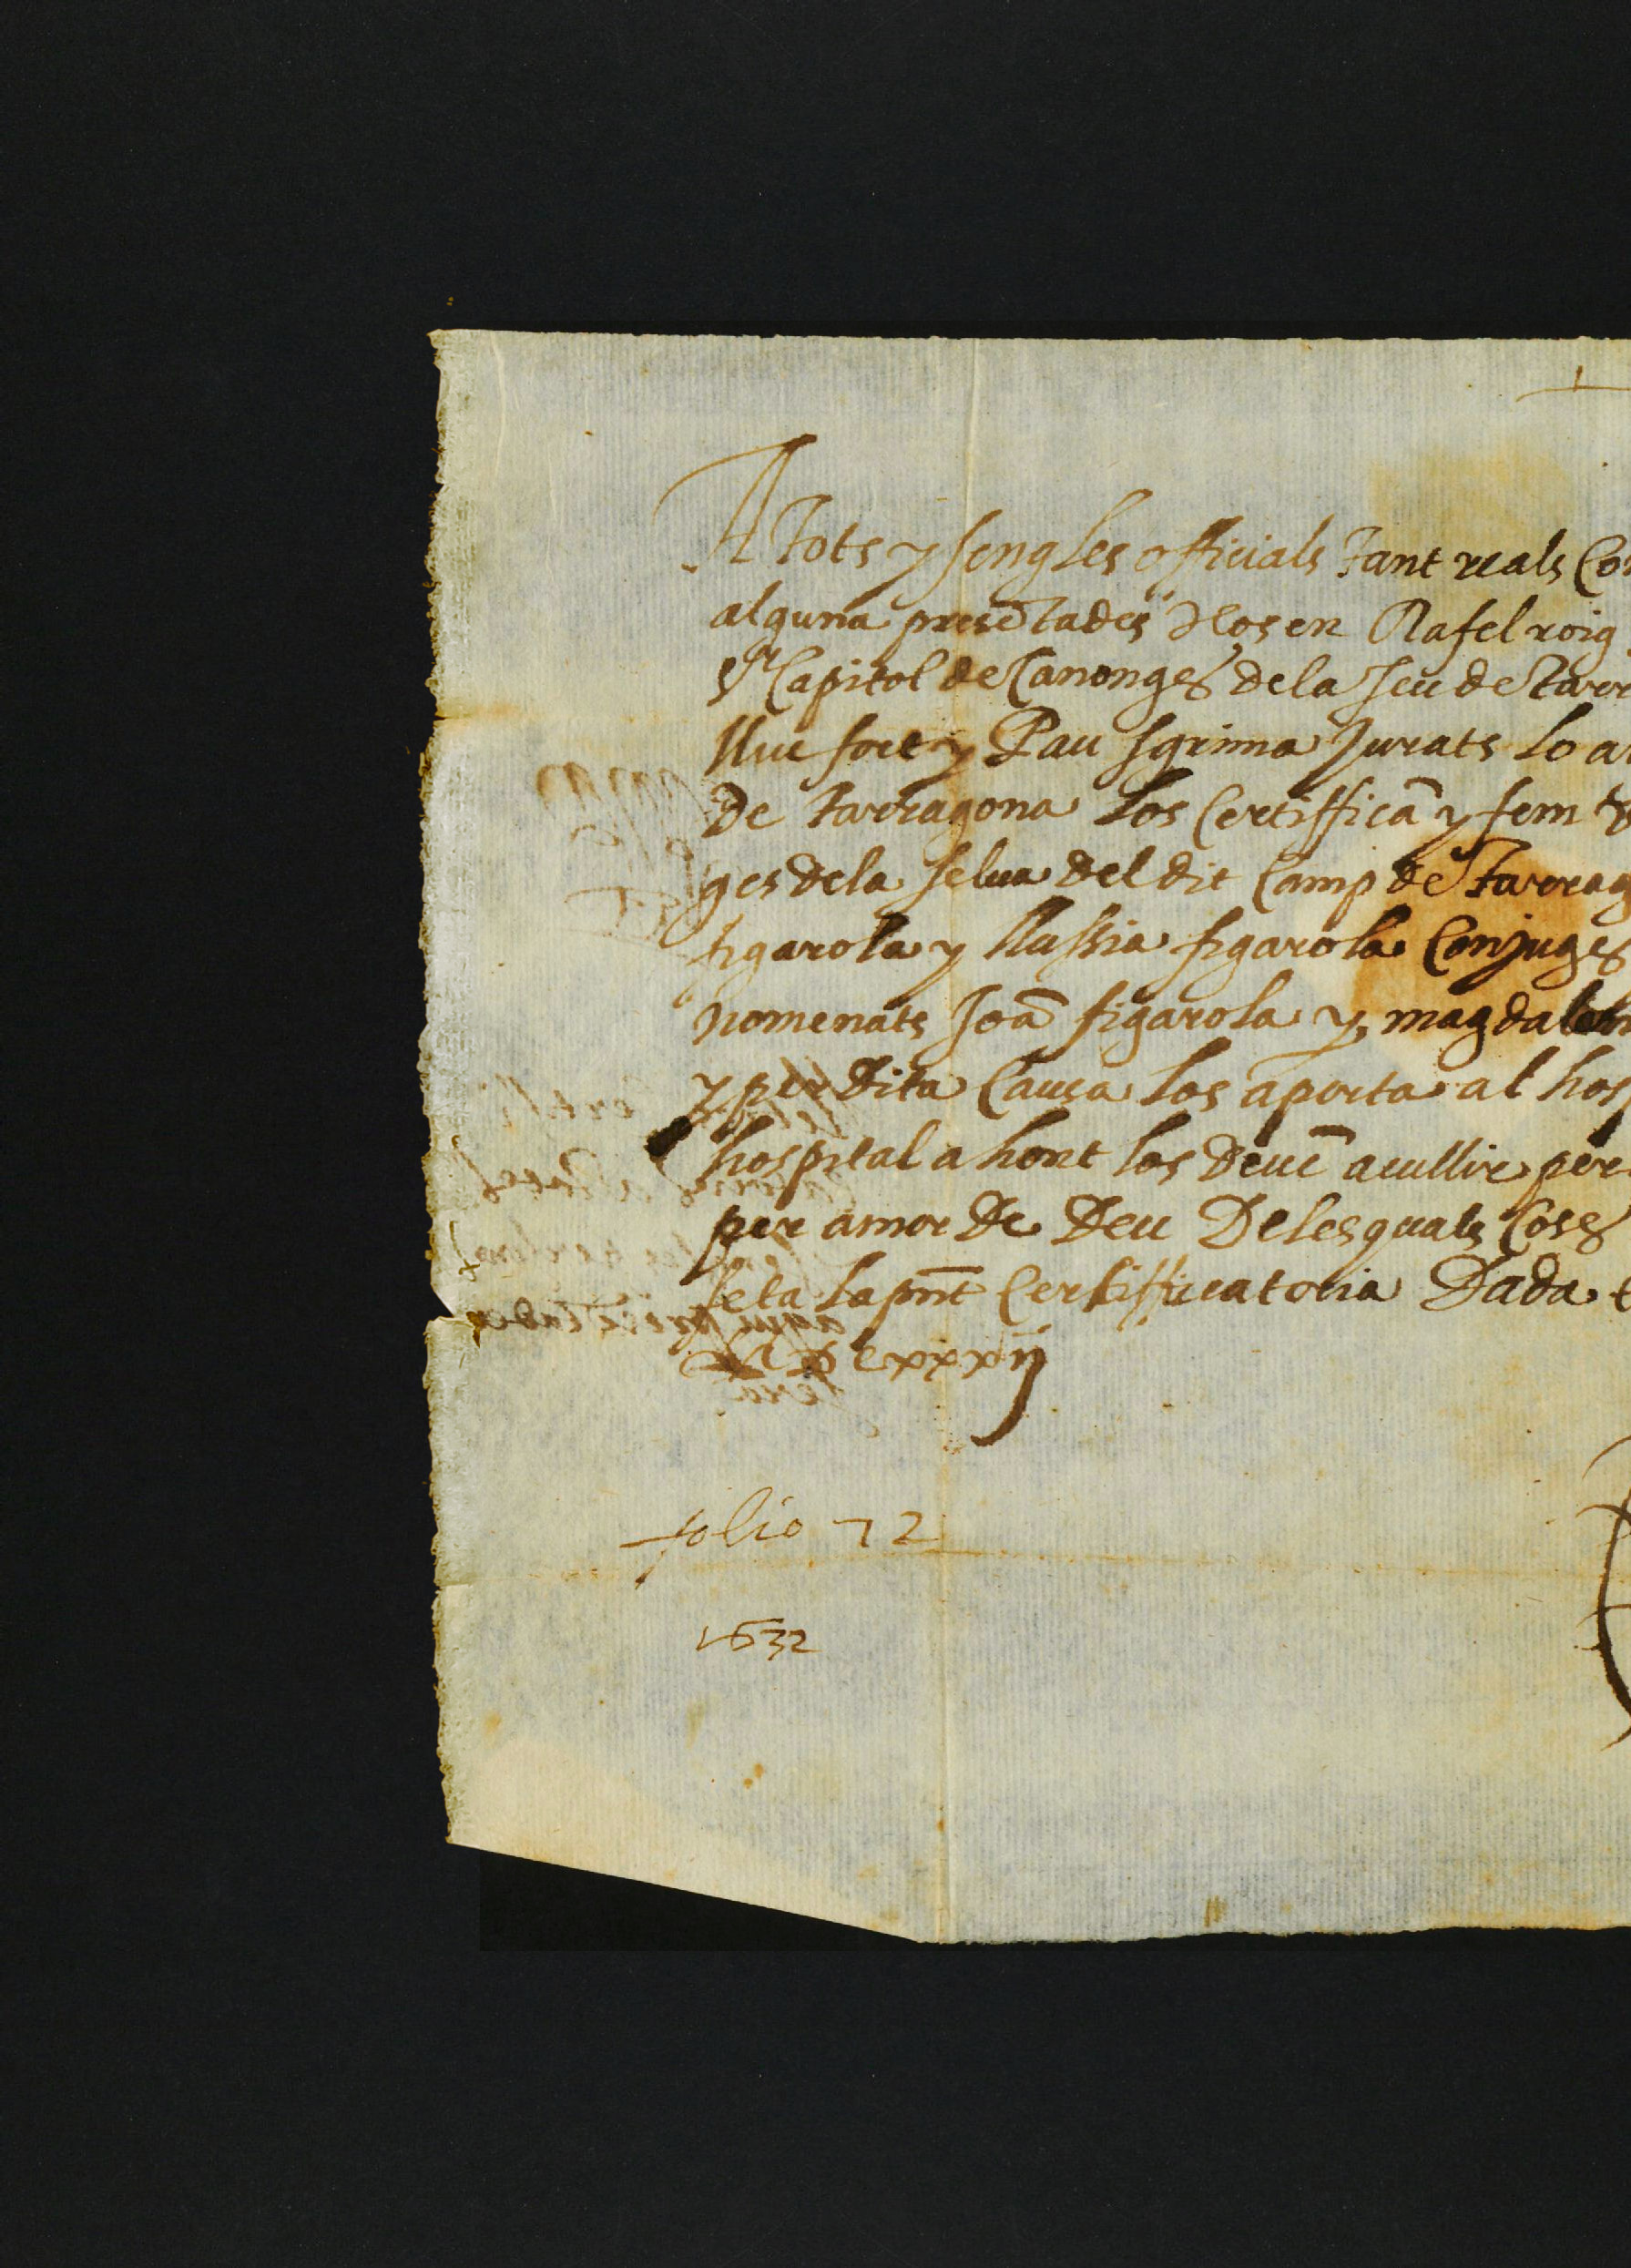 A tots y sengles officials tant reals Co
alguna presētades Nos en Rafel roig
Capitol de Canonges de la Seu de tarr
lluc fort y Pau sgrima Jurats lo a
de tarragona los Certifficā y fem
ges de la selua del dit Camp de Tarrag
figarola y llussia figarola Conjuges
nomenats Joā figarola y magdalen
y per dita Causa los aporta al hosp
hospital a hont los deuē acullir per
per amor de Deu De les quals Coses
feta la pn̄t Certifficatoria Dada
M DC xxxij
folio 72
1632